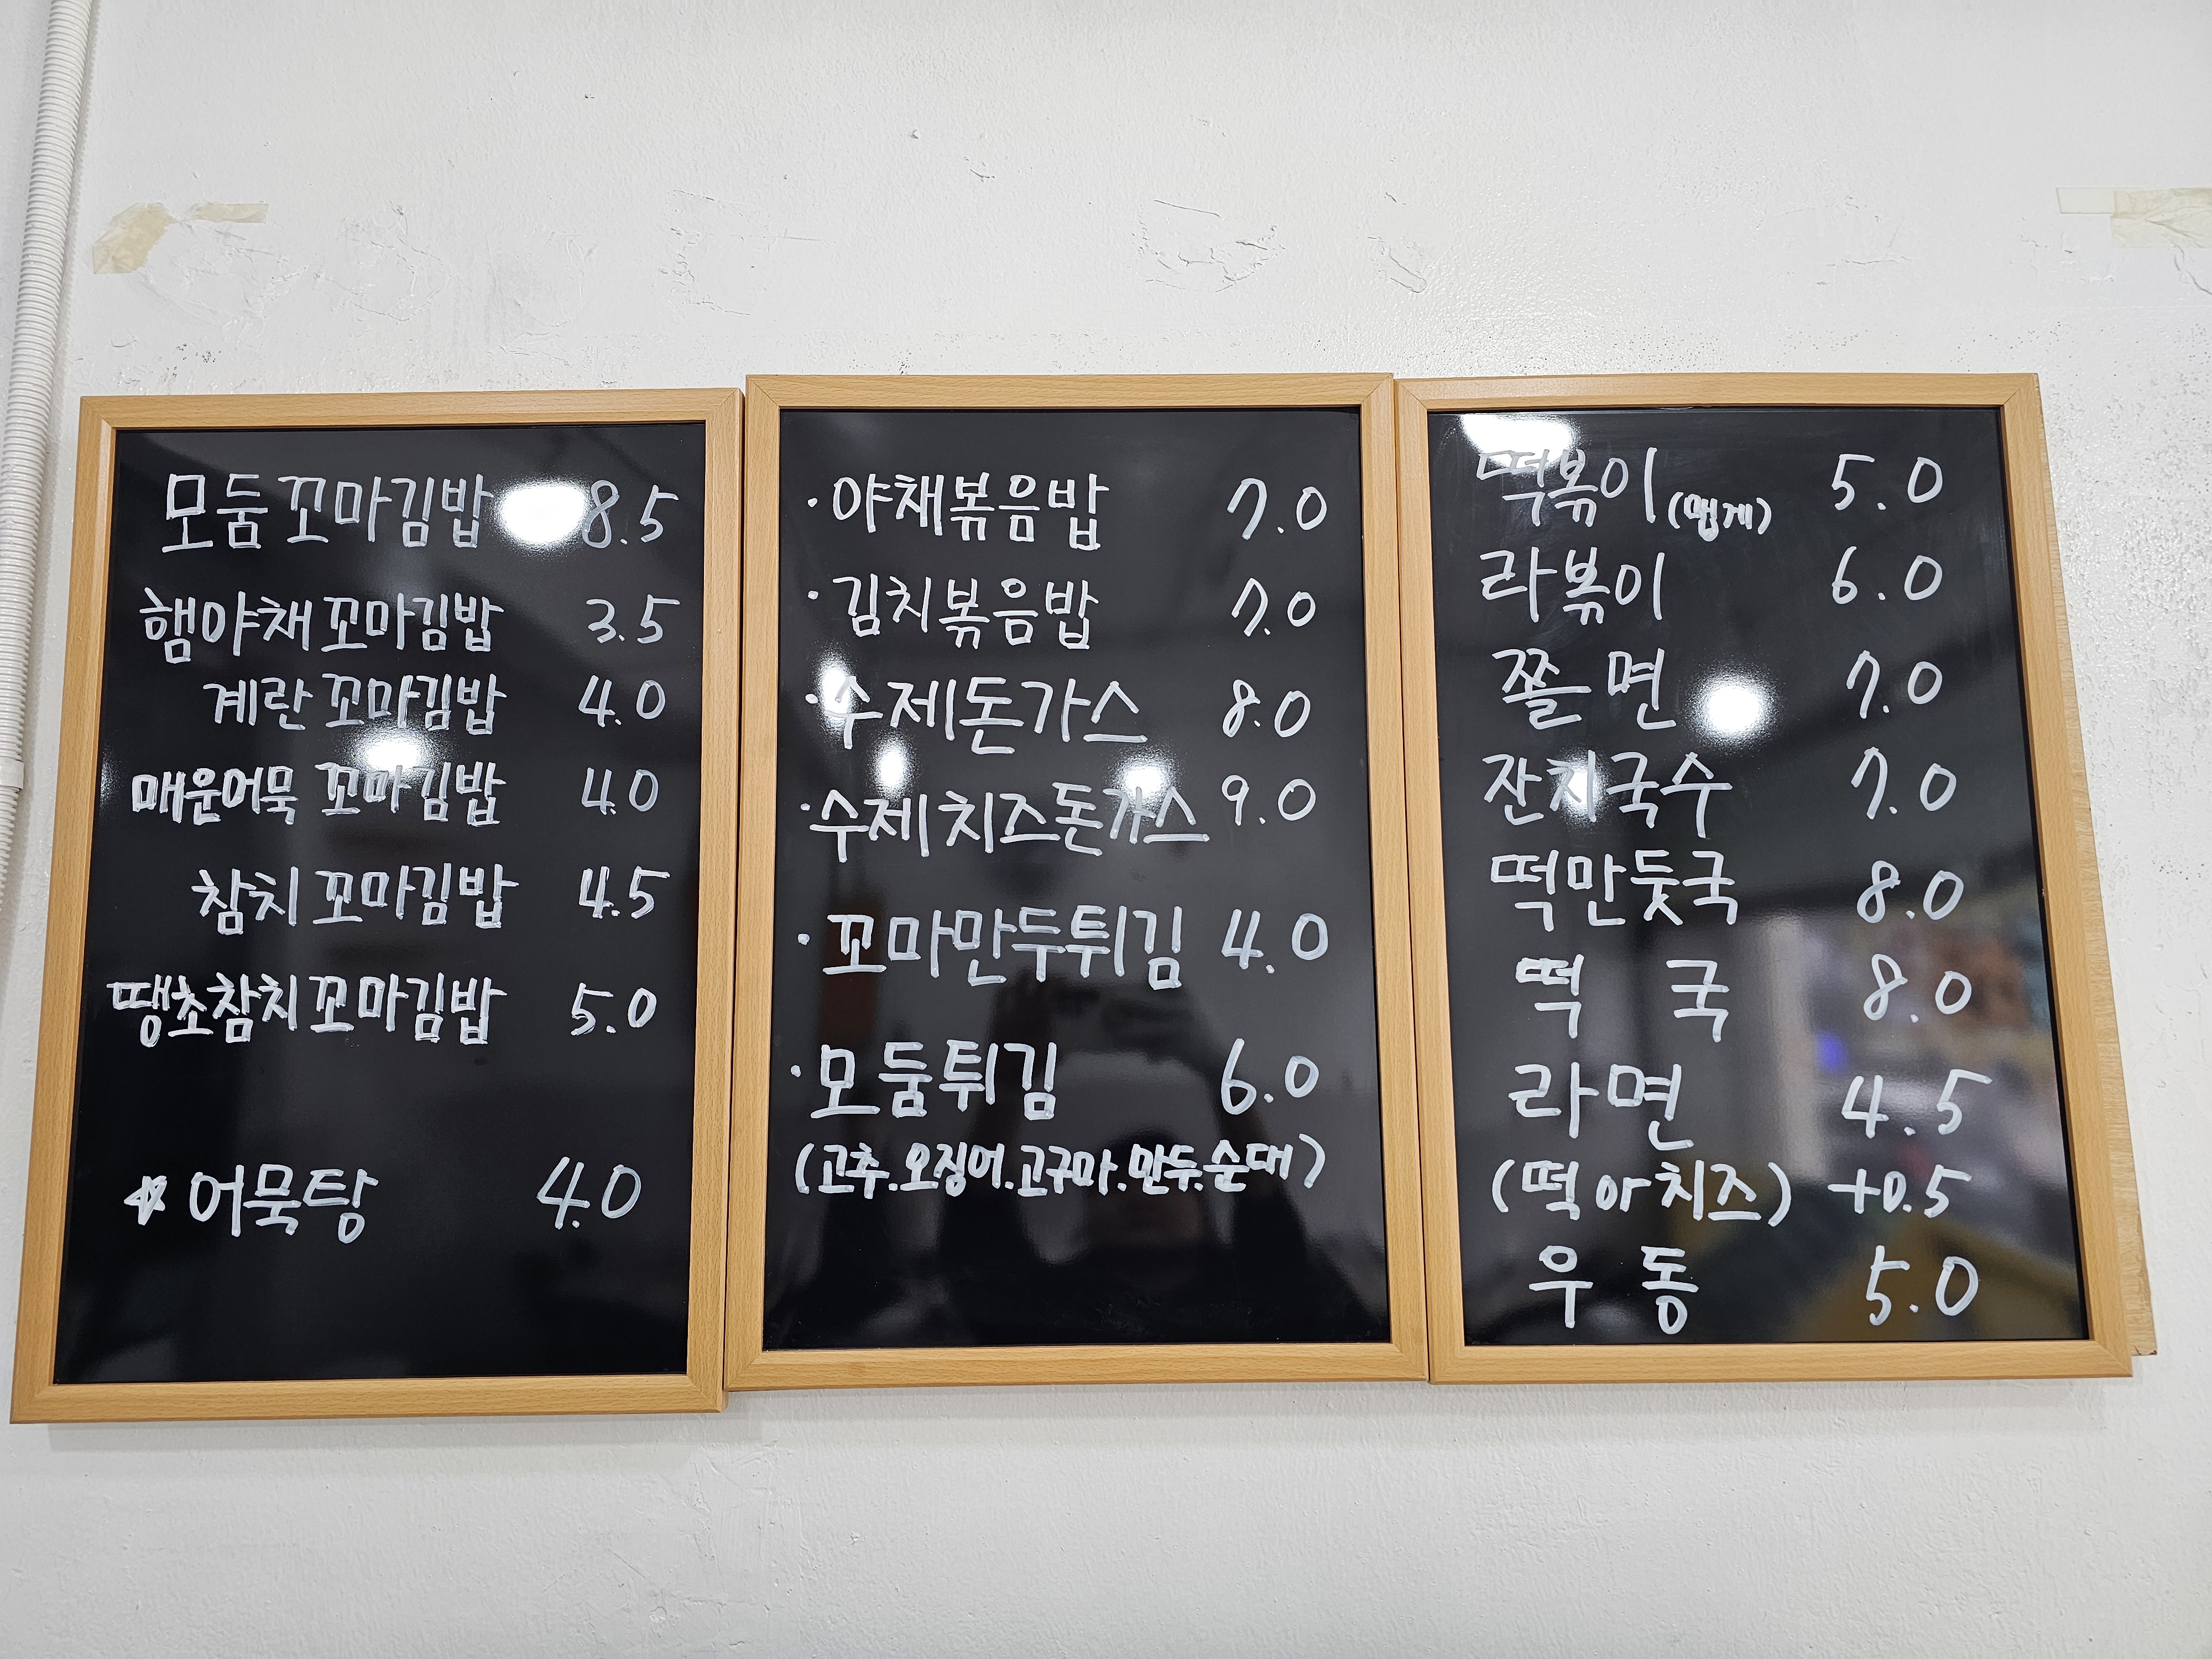 모둠 꼬마김밥 8.5
햄야채 꼬마김밥 3.5
계란 꼬마김밥 4.0
매운어묵 꼬마김밥 4.0
참치 꼬마김밥 4.5
땡초참치 꼬마김밥 5.0
☆ 어묵탕 4.0
· 야채볶음밥 7.0
· 김치볶음밥 7.0
· 수제돈가스 8.0
· 수제 치즈돈가스 9.0
· 꼬마만두튀김 4.0
· 모둠튀김 6.0
(고추.오징어.고구마.만두.순대)
떡볶이 (맵게) 5.0
라볶이 6.0
쫄면 7.0
잔치국수 7.0
떡만둣국 8.0
떡국 8.0
라면 4.5
(떡 or 치즈) +0.5
우동 5.0